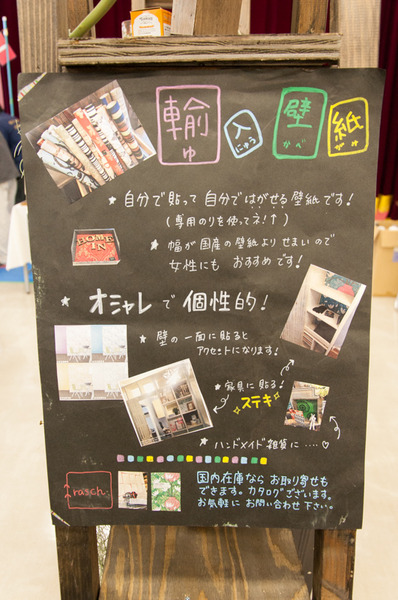 輸入壁紙
ゆ にゅう かべ がみ
★ 自分で貼って自分ではがせる壁紙です!
(専用のりを使ってネ!↑)
HOME IN
★ 幅が国産の壁紙よりせまいので
女性にもおすすめです!
★ オシャレで個性的!
★ 壁の一面に貼ると
アクセントになります!
★ 家具に貼る!
ステキ
★ ハンドメイド雑貨に‥‥♡
rasch
国内在庫ならお取り寄せも
できます。カタログございます。
お気軽にお問い合わせ下さい。